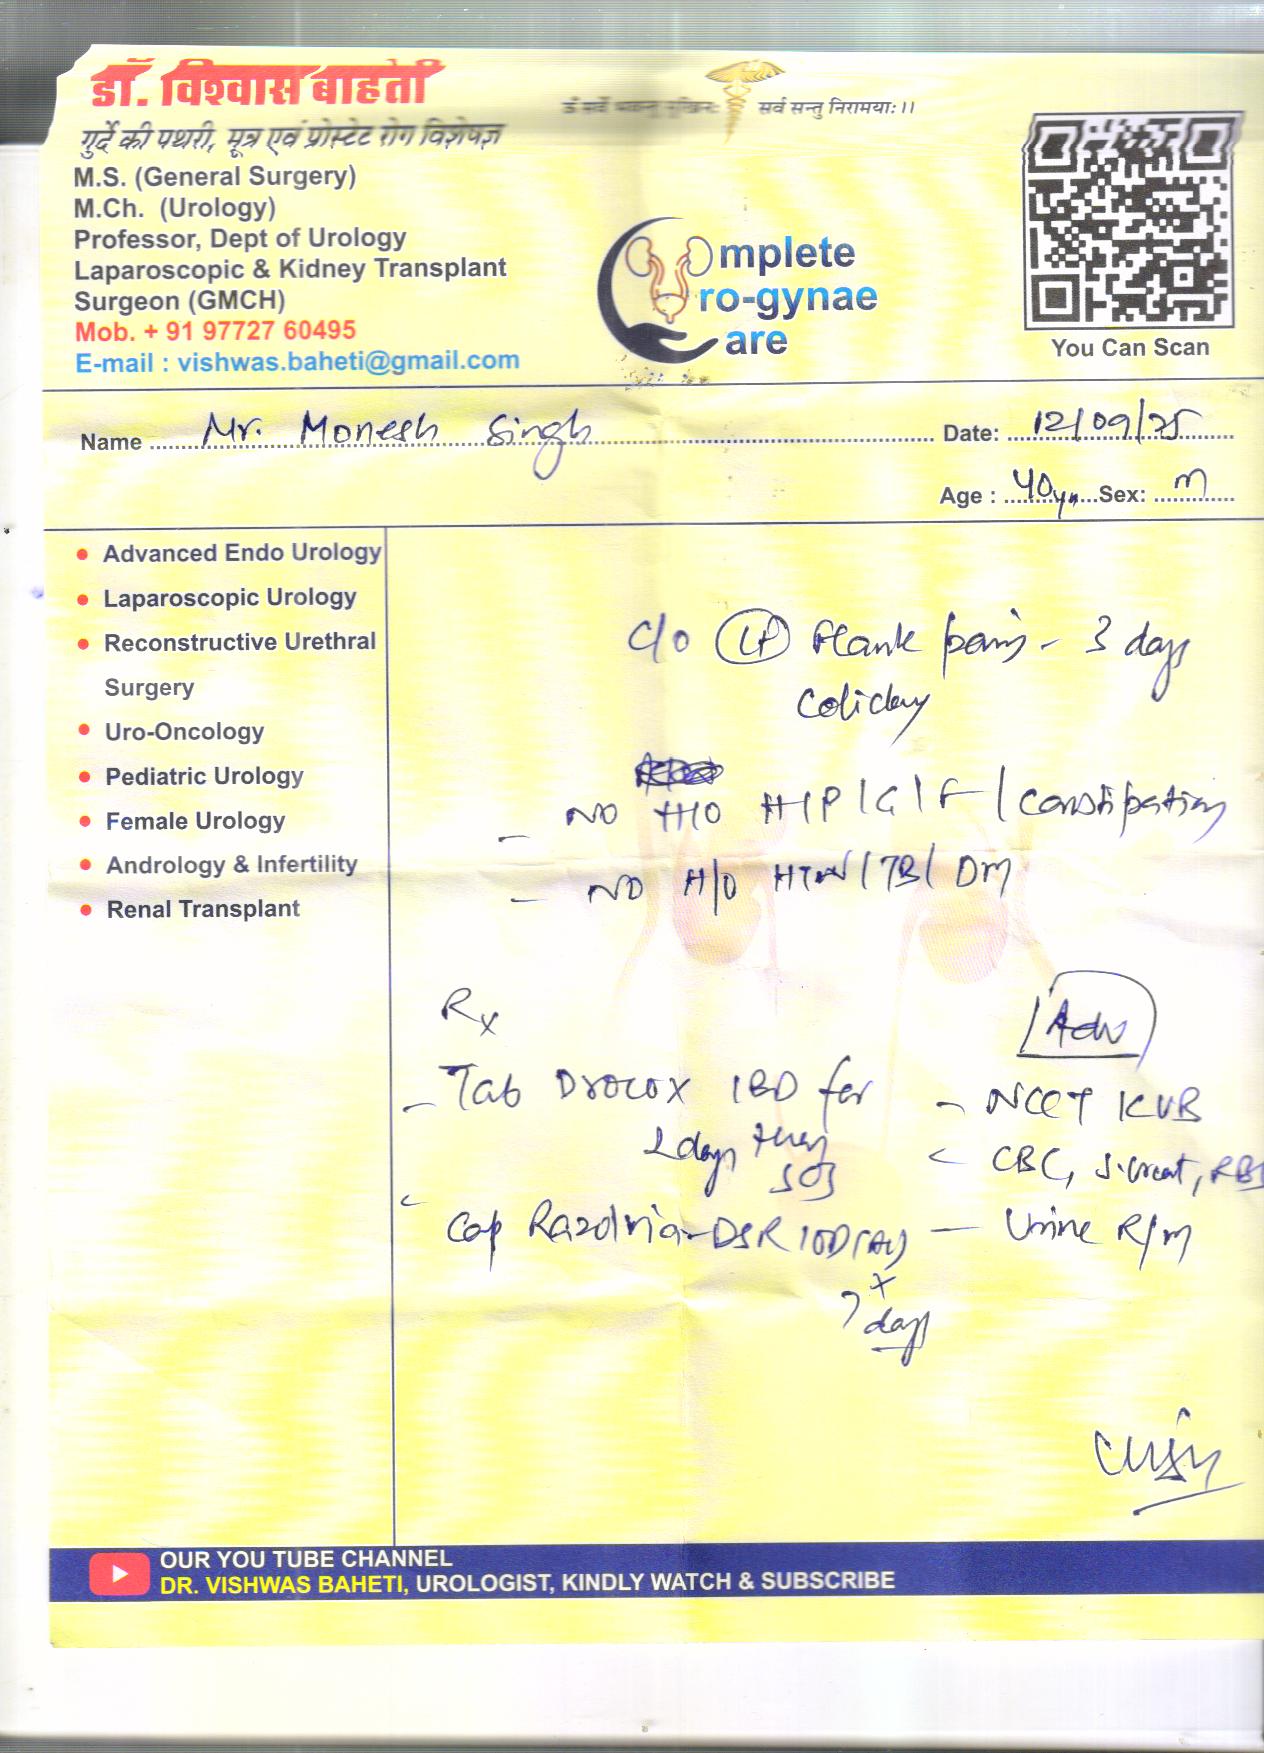 डॉ. विश्वास बाहेती
गुर्दे की पथरी, मूत्र एवं प्रोस्टेट रोग विशेषज्ञ
M.S. (General Surgery)
M.Ch. (Urology)
Professor, Dept of Urology
Laparoscopic & Kidney Transplant
Surgeon (GMCH)
Mob. + 91 97727 60495
E-mail : vishwas.baheti@gmail.com
ॐ सर्वे भवन्तु सुखिनः सर्व सन्तु निरामयाः।।
Complete
Uro-gynae
Care
You Can Scan
Name Mr. Monesh Singh Date: 12/09/25
Age : 40yr Sex: M
Advanced Endo Urology
Laparoscopic Urology
Reconstructive Urethral
Surgery
Uro-Oncology
Pediatric Urology
Female Urology
Andrology & Infertility
Renal Transplant
C/O Lt Flank pain - 3 days
Colicky
- NO H/O H/P/G/F/Constipation
- NO H/O HTN/TB/DM
Rx
- Tab Drocox 1BD for
2 days then
SOS
Cap Razolria-DSR 1OD (AC)
x
7 days
Adv
- NCCT KUB
- CBC, S.Creat, RBS
- Urine R/M
OUR YOU TUBE CHANNEL
DR. VISHWAS BAHETI, UROLOGIST, KINDLY WATCH & SUBSCRIBE